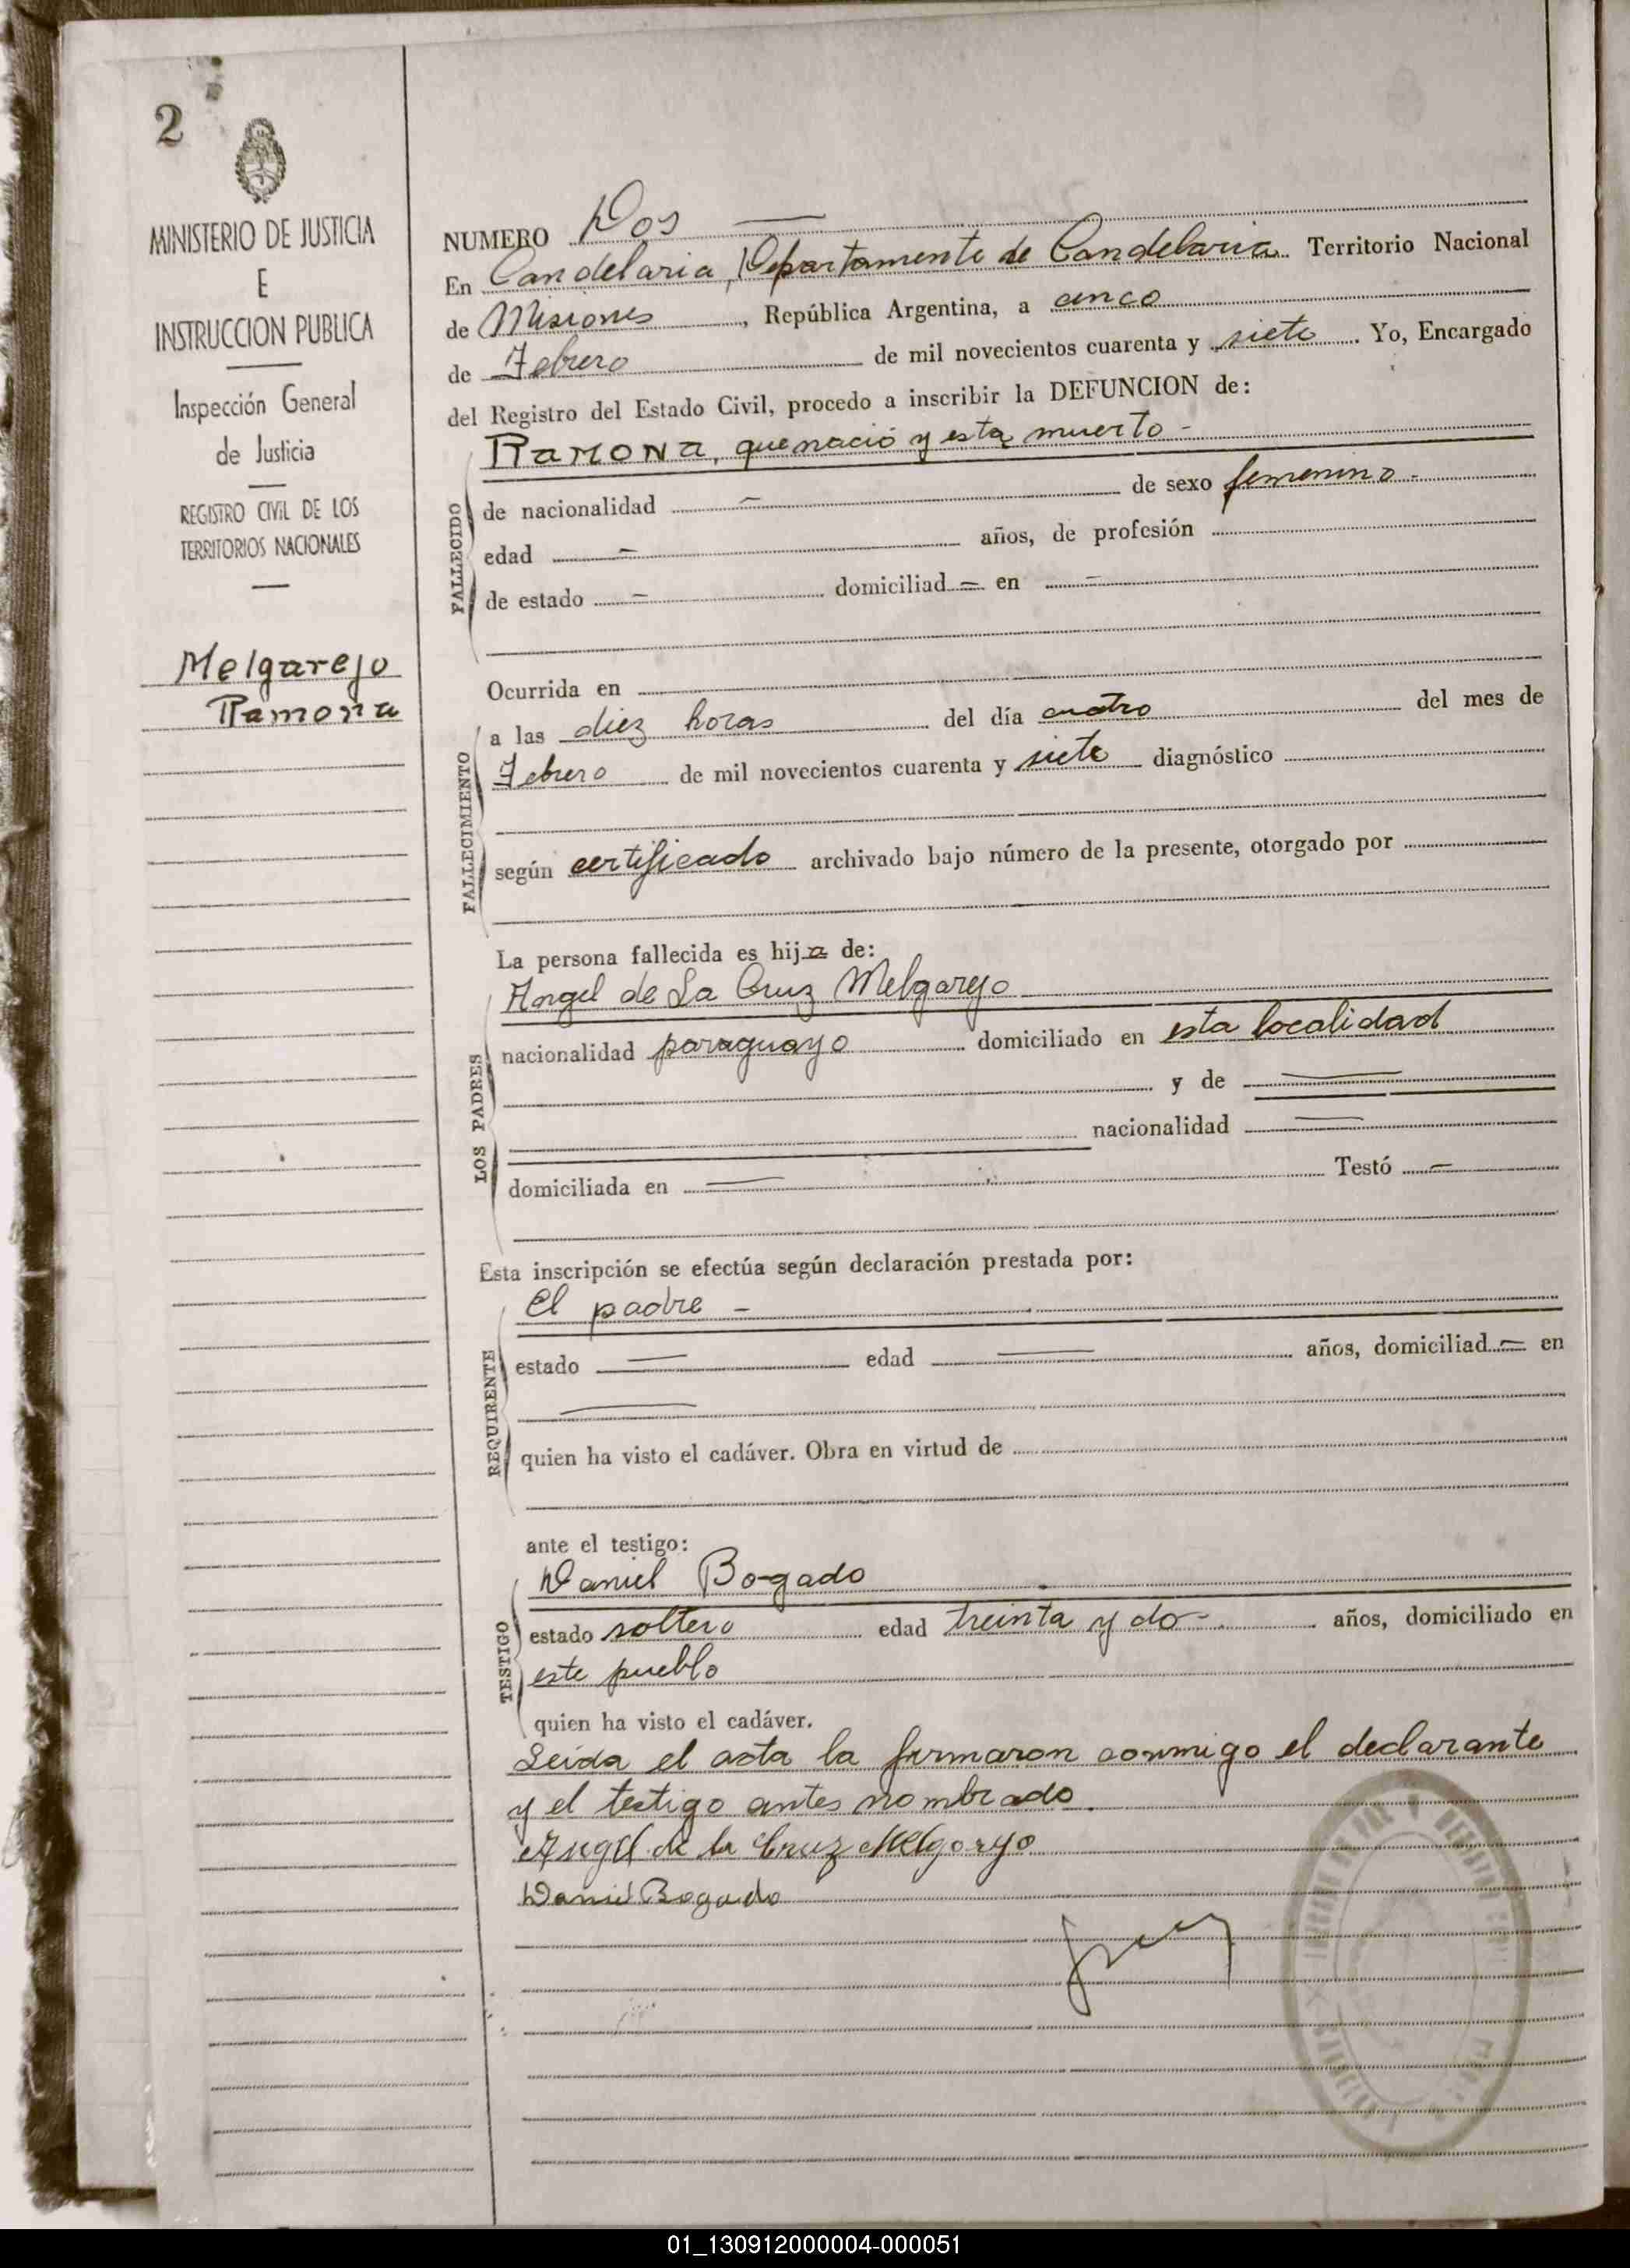 2
MINISTERIO DE JUSTICIA
E
INSTRUCCION PUBLICA
Inspección General
de Justicia
REGISTRO CIVIL DE LOS
TERRITORIOS NACIONALES
Melgarejo
Ramona
NUMERO Dos
En Candelaria, Departamento de Candelaria Territorio Nacional
de Misiones, República Argentina, a cinco
de Febrero de mil novecientos cuarenta y siete. Yo, Encargado
del Registro del Estado Civil, procedo a inscribir la DEFUNCION de:
RAMONA, que nació y esta muerto -
FALLECIDO
de nacionalidad — de sexo femenino -
edad — años, de profesión
de estado — domiciliad = en —
Ocurrida en
FALLECIMIENTO
a las diez horas del día cuatro del mes de
Febrero de mil novecientos cuarenta y siete diagnóstico
según certificado archivado bajo número de la presente, otorgado por
La persona fallecida es hija de:
LOS PADRES
Angel de La Cruz Melgarejo
nacionalidad paraguayo domiciliado en esta localidad
y de —
nacionalidad —
domiciliada en — Testó —
Esta inscripción se efectúa según declaración prestada por:
REQUIRENTE
El padre -
estado — edad — años, domiciliad = en
—
quien ha visto el cadáver. Obra en virtud de
ante el testigo:
TESTIGO
Daniel Bogado
estado soltero edad treinta y do- años, domiciliado en
este pueblo
quien ha visto el cadáver.
Leida el acta la firmaron conmigo el declarante
y el testigo antes nombrado.
Angel de la Cruz Melgarejo
Daniel Bogado
01_130912000004-000051